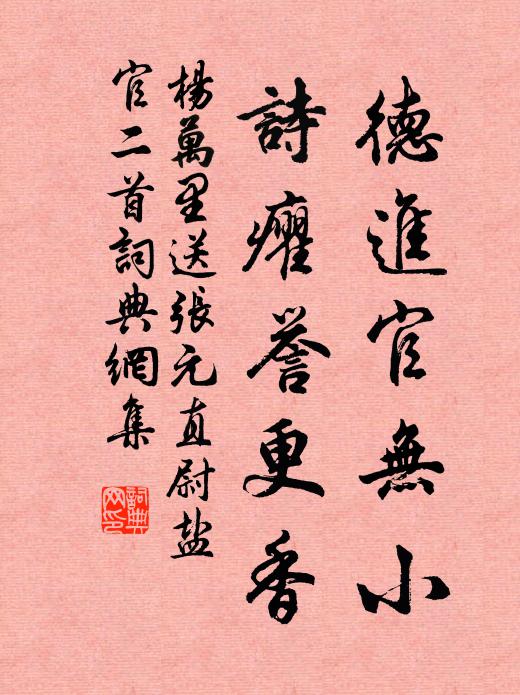 德進官無小
詩癯譽更香
楊萬里送張元直尉盐
官二首詞典網集
詞典網印